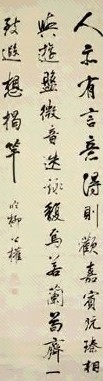 人亦有言意得則歡嘉賓既臻相
與遊盤微音迭詠馥焉若蘭苟齊一
致遐想揭竿
臨柳公權